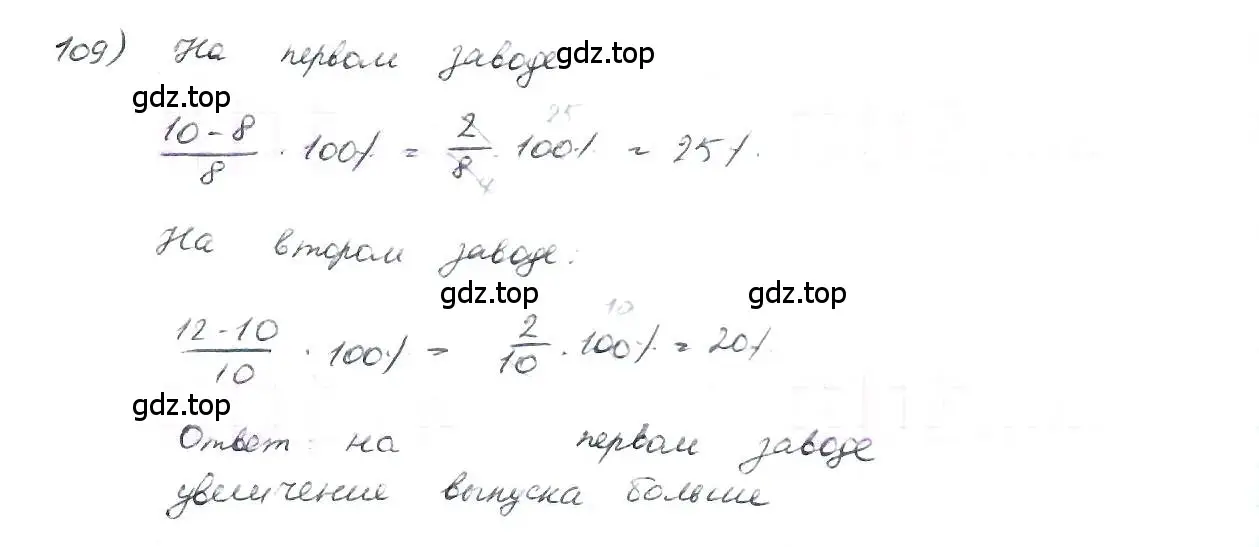 109) На первом заводе gdz.top
gdz.top
10 - 8 / 8 · 100% = 2 / 8 · 100% = 25%.
25
4
На втором заводе:
gdz.top gdz.top
12 - 10 / 10 · 100% = 2 / 10 · 100% = 20%
10
gdz.top
Ответ: на первом заводе
увеличение выпуска больше